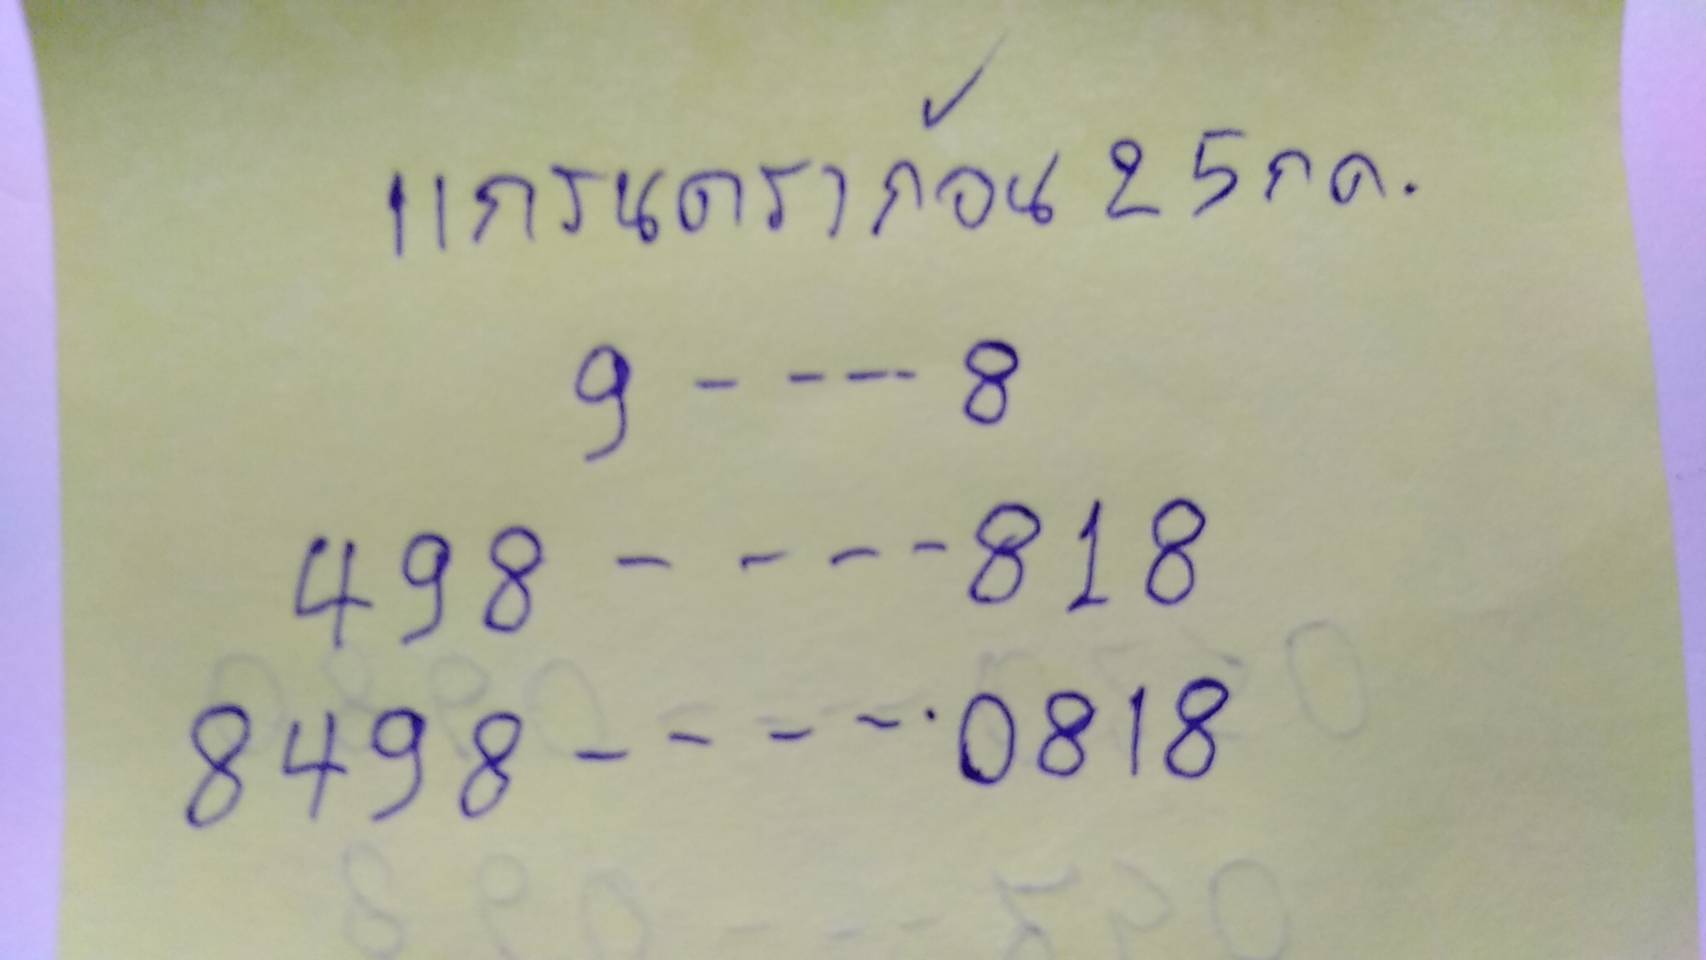 แกรนดราก้อน 25 กค.
9 - --- 8
498 - - - - 818
8498 - - - -. 0818